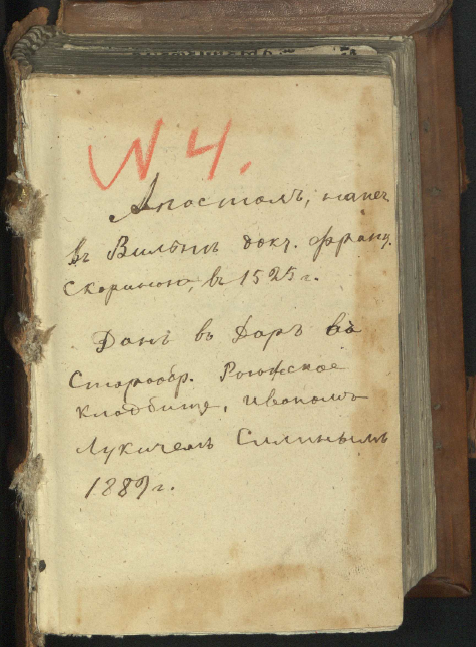 N 4.
Апостолъ, напеч.
въ Вильнѣ докт. Франц.
Скориною, въ 1525 г.
Данъ въ Даръ въ
Старообр. Рогожское
кладбище, Иваномъ
Лукичемъ Силинымъ
1889 г.